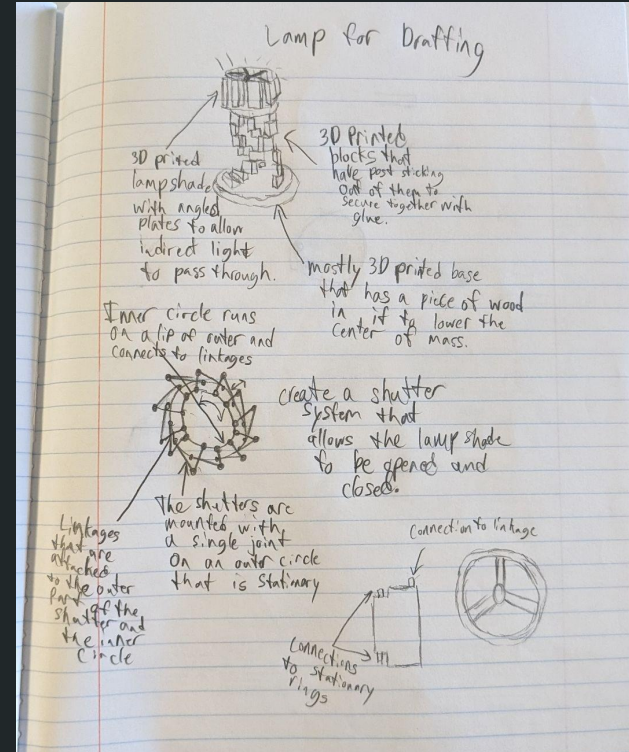 Lamp for Draffing
3D prited
lampshade
with angled
plates to allow
indirect light
to pass through.
3D Printed
blocks that
have post sticking
out of them to
secure together with
glue.
mostly 3D printed base
that has a piece of wood
in it to lower the
center of mass.
Inner circle runs
on a lip of outer and
connects to linkages
create a shutter
system that
allows the lamp shade
to be opened and
closed.
The shutters are
mounted with
a single joint
on an outer circle
that is stationary
Linkages
that are
attached
to the outer
part of the
shutter and
the inner
circle
Connection to linkage
Connections
to stationary
rings